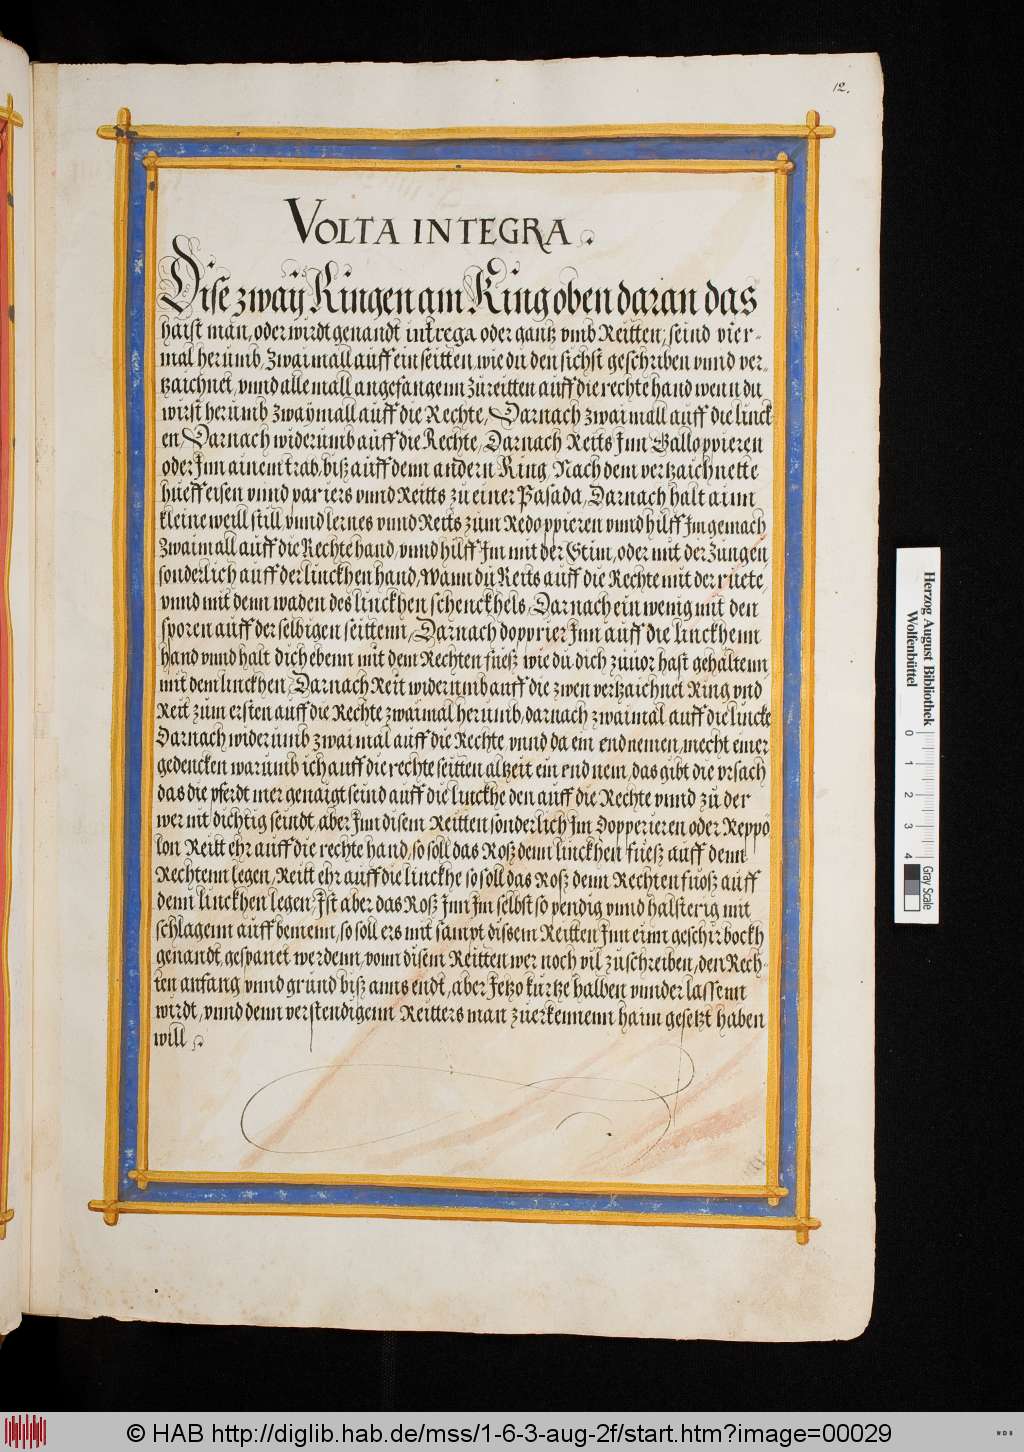 12.
VOLTA INTEGRA.
Dise zwaÿ Ringen am Ring oben daran das
haist man, oder wirdt genandt intrega oder gantz vmb Reitten, seind vier-
mal herumb, Zwaimall auff ein seitten, wie du den sichst geschriben vnnd ver-
tzaichnet, vnnd alle mall angefangenn zu reitten auff die rechte hand wenn du
wirst herumb zwaÿmall auff die Rechte, Darnach zwaimall auff die linck-
en, Darnach widerumb auff die Rechte, Darnach Reits Jnn Galloppieren
oder Jnn ainem trab, biß auff denn andern Ring, Nach dem vertzaichnette
hueffeisen vnnd variers vnnd Reitts zu einer Pasada, Darnach halt ainn
kleine weill still, vnnd lernes vnnd Reits zum Redoppieren vnnd hilff Jm gemach
Zwaimall auff die Rechte hand, vnnd hilff Jm mit der Stim, oder mit der Zungen,
sonderlich auff der linckhen hand, Wann du Reits auff die Rechte mit der ruete,
vnnd mit denn waden des linckhen schenckhels, Darnach ein wenig mit den
sporen auff der selbigen seittenn, Darnach dopprier Jnn auff die linckhenn
hand vnnd halt dich ebenn mit dem Rechten fueß wie du dich zuuor hast gehaltenn
mit dem linckhen, Darnach Reit widerumb auff die zwen vertzaichnet Ring vnd
Reit zum ersten auff die Rechte zwaimal herumb, darnach zwaimal auff die lincke
Darnach widerumb zwaimal auff die Rechte vnnd da ein end nemen, mecht einer
gedencken warumb ich auff die rechte seitten altzeit ein end nem, das gibt die vrsach
das die pferdt mer genaigt seind auff die linckhe den auff die Rechte vnnd zu der
wer nit dichtig seindt, aber Jnn disem Reitten sonderlich Jm Dopperieren oder Reppo
lon Reitt ehr auff die rechte hand, so soll das Roß denn linckhen fueß auff denn
Rechtenn legen, Reitt ehr auff die linckhe so soll das Roß denn Rechten fuoß auff
denn linckhen legen, Jst aber das Roß Jnn Jm selbst so vendig vnnd halsterig mit
schlagenn auff bemenn, so soll ers mit sampt dissem Reitten Jnn einn geschir bockh
genandt, gespanet werdenn, vonn disem Reitten wer noch vil zuschreiben, den Rech-
ten anfang vnnd grund biß anns endt, aber Jetzo kurtze halben vnnder lassenn
wirdt, vnnd denn verstendigenn Reitters man zuerkennenn haim gesetzt haben
will.
Herzog August Bibliothek
Wolfenbüttel
0 1 2 3 4
Gray Scale
© HAB http://diglib.hab.de/mss/1-6-3-aug-2f/start.htm?image=00029